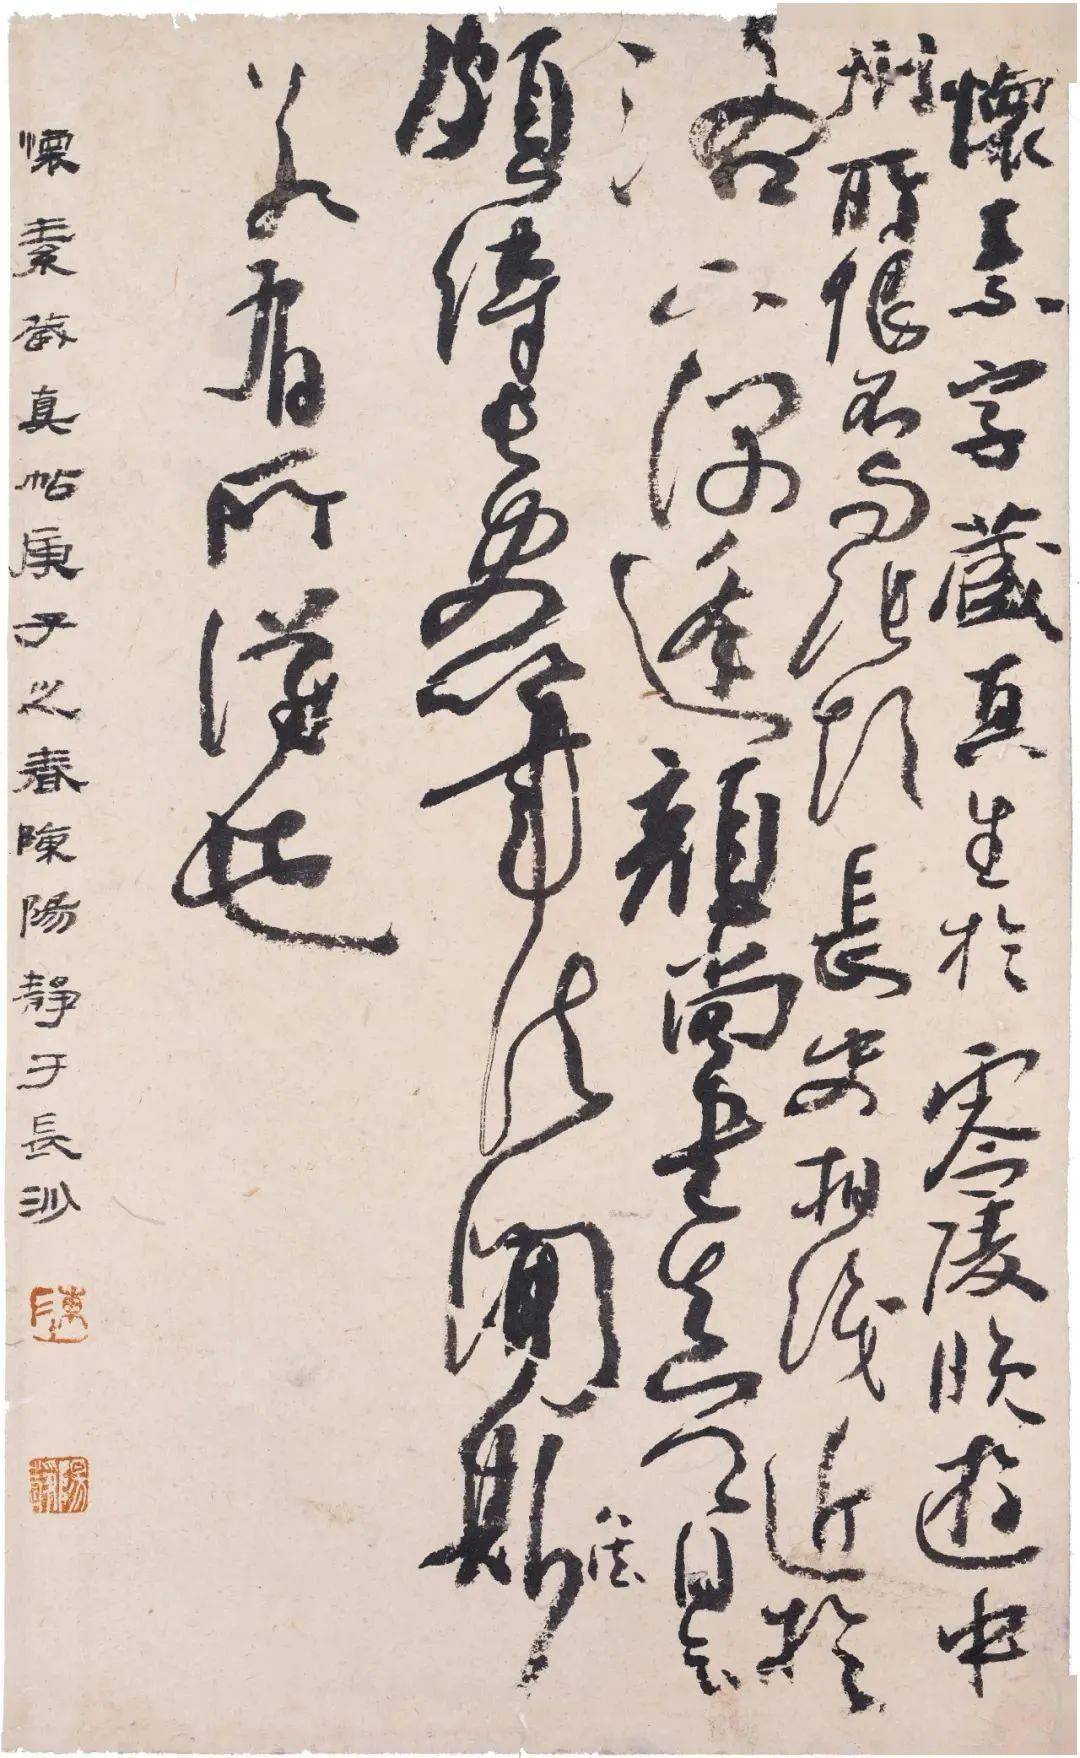 懷素字藏真生於零陵晚遊中
州所恨不與張顛長史相識近於
洛下偶逢顏尚書真卿自云
頗傳長史筆法聞斯八法
若有所得也
懷素藏真帖庚子之春陳陽靜于長沙
陳
陽靜